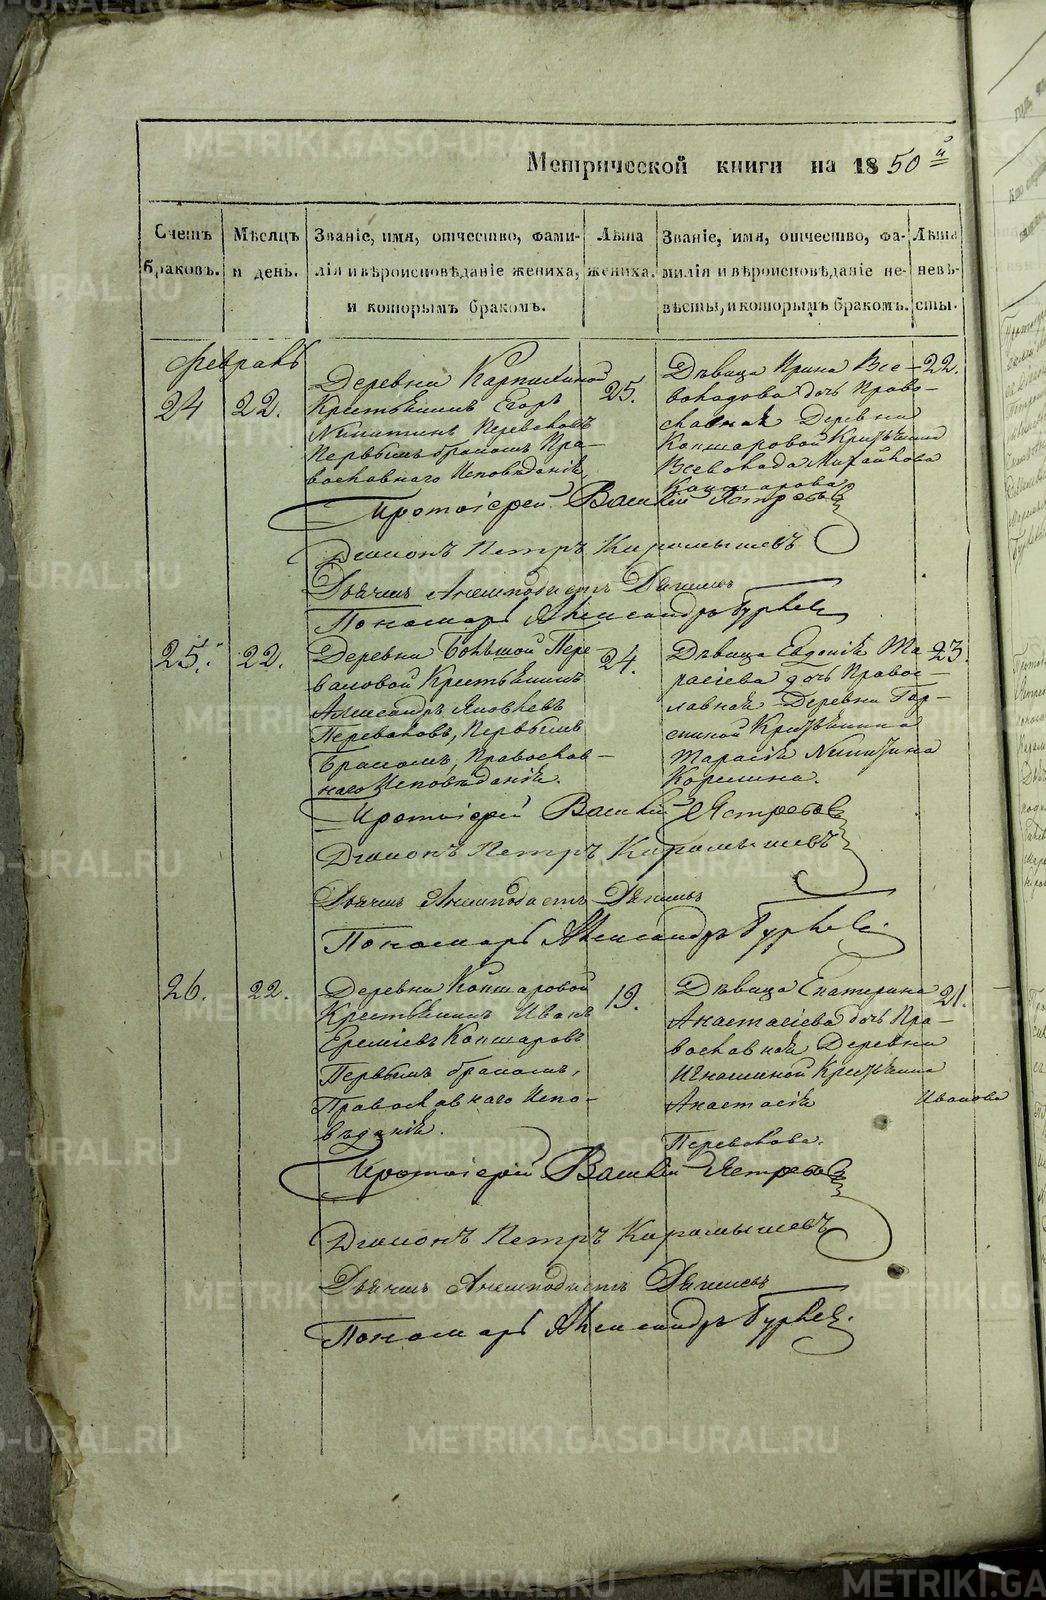 Метрической книги на 1850й
Счетъ браковъ.
Мѣсяцъ и день.
Званіе, имя, отчество, фами-
лія и вѣроисповѣданіе жениха,
и которымъ бракомъ.
Лѣта жениха.
Званіе, имя, отчество, фа-
милія и вѣроисповѣданіе не-
вѣсты, и которымъ бракомъ.
Лѣта невѣ-
сты.
Февраль
24
22.
Деревни
Крестьянинъ Егоръ
Никитинъ Переваловъ
Первымъ бракомъ Пра-
вославнаго Исповѣданія
25.
Дѣвица Ирина Все-
володова дочь Право-
славная Деревни
Копшаровой Крестьянина
Всеволода Михайлова
Копшарова
22.
Протоіерей Василій Ястребовъ
Діаконъ Петръ Карамышевъ
Дьячекъ Анемподистъ Дягилевъ
Пономарь Александръ
25.
22.
Деревни Большой Пере-
валовой Крестьянинъ
Александръ Яковлевъ
Переваловъ, Первымъ
Бракомъ, Православ-
наго Исповѣданія.
24.
Дѣвица Евдокія Та-
расіева дочь Правос-
лавная Деревни
Крестьянина
Тарасія Никитина
Корелина.
23.
Протоіерей Василій Ястребовъ
Діаконъ Петръ Карамышевъ
Дьячекъ Анемподистъ Дягилевъ
Пономарь Александръ
26.
22.
Деревни Копшаровой
Крестьянинъ Иванъ
Ереміевъ Копшаровъ
Первымъ бракомъ,
Православнаго Испо-
вѣданія.
19.
Дѣвица Екатерина
Анастасіева дочь Пра-
вославная Деревни
Игнашиной Крестьянина
Анастасія Иванова
Перевалова.
21.
Протоіерей Василій Ястребовъ
Діаконъ Петръ Карамышевъ
Дьячекъ Анемподистъ Дягилевъ
Пономарь Александръ
METRIKI.GASO-URAL.RU